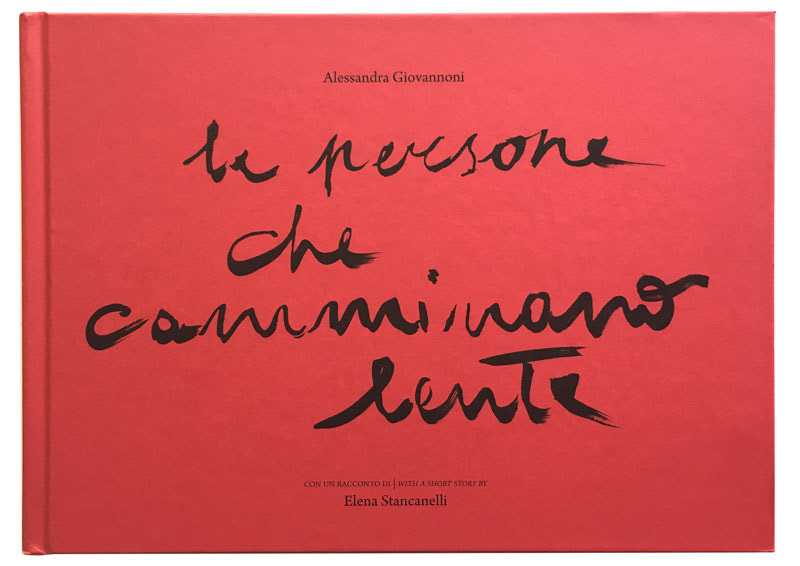 Alessandra Giovannoni
le persone
che
camminano
lente
CON UN RACCONTO DI | WITH A SHORT STORY BY
Elena Stancanelli